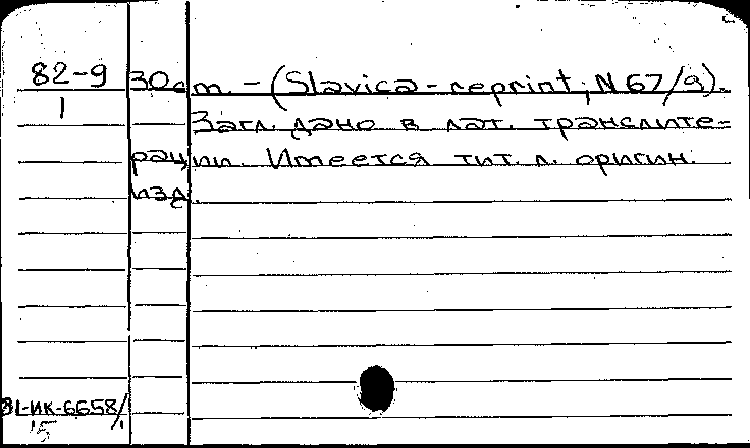 82-9
1
30 cm. - (Slavica-reprint; N 67/9).
Загл. дано в лат. транслите=
рации. Имеется тит. л. оригин.
изд.
81-ИК-6658/1
15